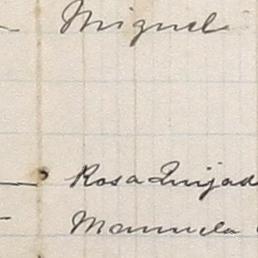 Miguel
Rosa Quijad
Manuela